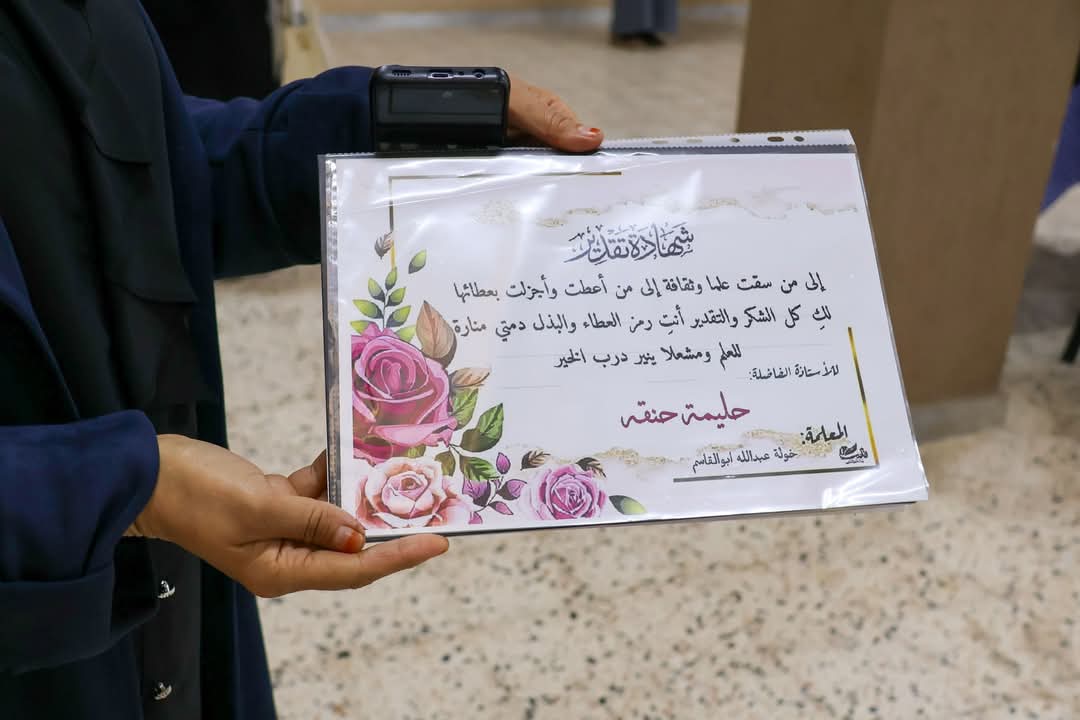 شهادة تقدير
إلى من سقت علما وثقافة إلى من أعطت وأجزلت بعطائها
لكِ كل الشكر والتقدير أنتِ رمز العطاء والبذل دمتي منارة
للعلم ومشعلا ينير درب الخير
للأستاذة الفاضلة:
حليمة حنقه
المعلمة:
خولة عبدالله ابوالقاسم